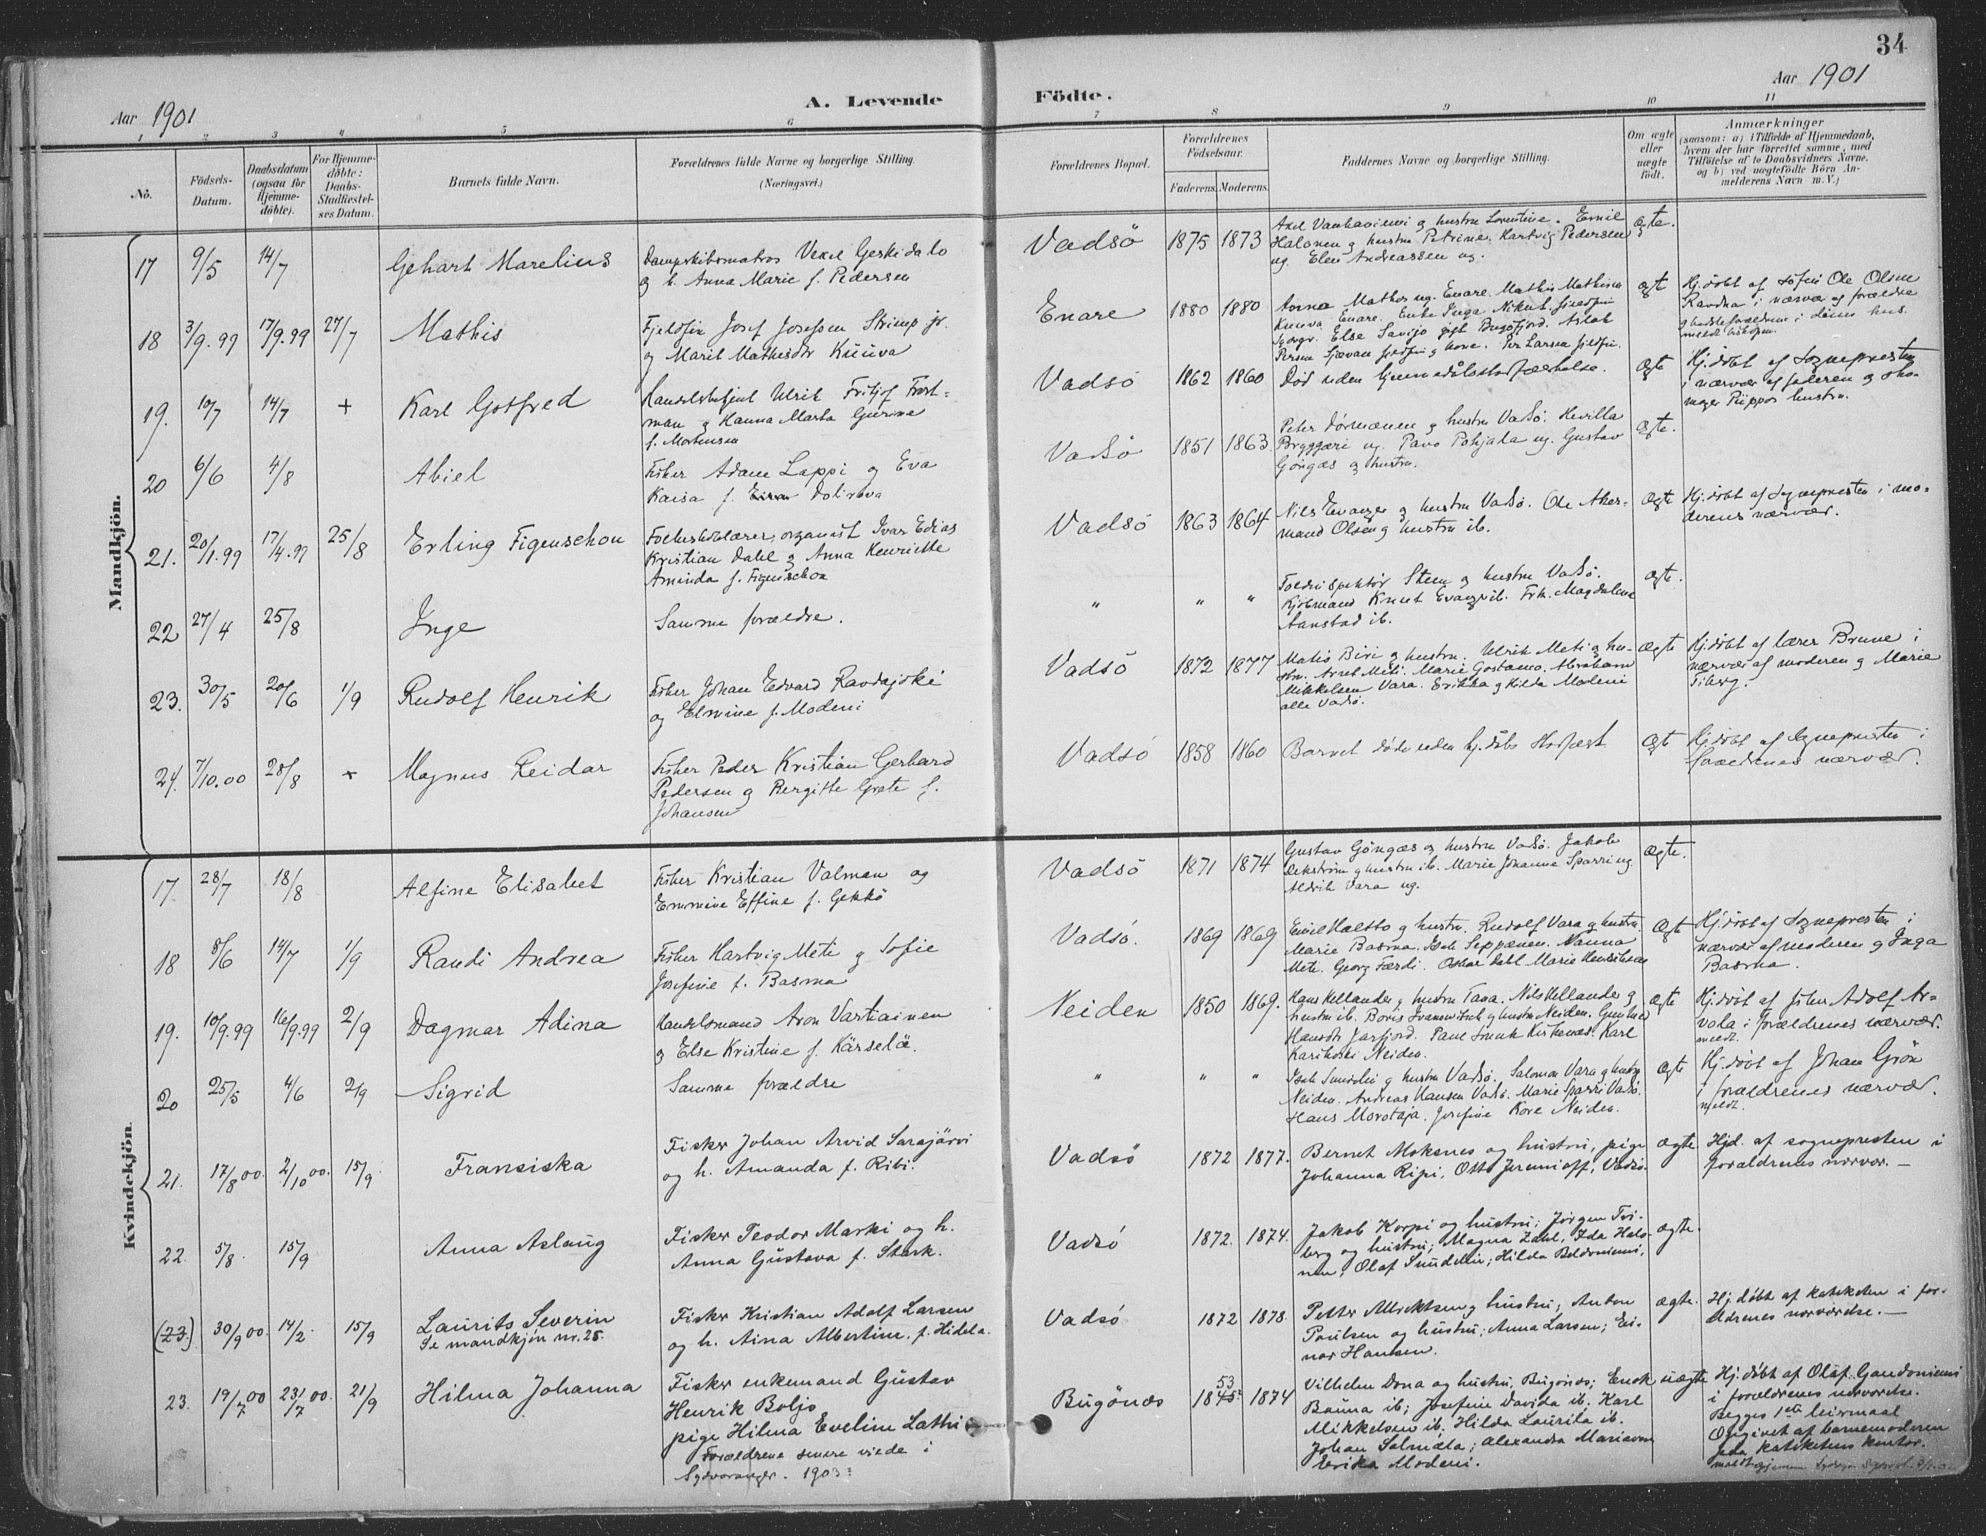 34
Aar 1901
A. Levende
Födte.
Aar 1901
1 2 3 4 5 6 7 8 9 10 11
No.
Födsels-
Datum.
Daabsdatum
(ogsaa for
Hjemme-
döbte).
For Hjemme-
döbte:
Daabs-
Stadfæstel-
ses Datum.
Barnets fulde Navn.
Forældrenes fulde Navne og borgerlige Stilling.
(Næringsvei.)
Forældrenes Bopæl.
Forældrenes
Födselsaar.
Faderens. Moderens.
Faddernes Navne og borgerlige Stilling.
Om ægte
eller
uægte
födt.
Anmærkninger
(saasom: a) i Tilfælde af Hjemmedaab,
hvem der har forrettet samme, med
Tilföielse af to Daabsvidners Navne.
og b) ved uægtefödte Börn An-
melderens Navn m. V.)
Mandkjön.
17 9/5 14/7 Gehart Marelius
Dampskibsmatros
og h. Anna Marie f. Pedersen
Vadsö 1875 1873
Halonen og hustru Petrine. Hartvig Pedersen
ug. Elen Andreassen ug.
ægte.
18 3/9.99 17/9.99 27/7 Mathis
Fjeldfin Josef Josefsen Strimp jr.
og Marit Mathisdtr Kuuva
Enare 1880 1880
Persen Sjævan fjeldfin g kone. Per Larsen fjeldfin.
ægt
Hj.döbt af Ole Olsen
Ravdna i nærvær af forældre
19. 10/7 14/7 + Karl Gotfred
Handelsbetjent Ulrik Fritjof Fort-
man og Hanna Marta Gurine
f. Mortensen
Vadsö 1862 1860
Död uden hjemmedåbsstadfæstelse.
ægt
Hj.döbt af Sognepresten
i nærvær af faderen og sko-
mager Piippos hustru.
20 6/6 4/8 Abiel
Fisker Adam Lappi og Eva
Kaisa f.
Vadsö 1851 1863
Peter og hustru Vadsö. Hevilla
Bryggari ug. Pavo Pohjala ug. Gustav
Göngæs og hustru.
ægte.
21. 20/1.99 17/4.99 25/8 Erling Figenschou
Folkeskolelærer, organist Ivar Edias
Kristian Dahl og Anna Henriette
Aminda f. Figenschou
Vadsö 1863 1864
Nils Evanger og hustru Vadsö. Ole Aker-
mand Olsen g hustru ib.
ægte
Hj.döbt af Sognepresten i mo-
derens nærvær.
22 27/4 25/8 Inge
Samme forældre.
" " "
Steen og hustru Vadsö.
Kjöbmand Knut Evang ib. Frk. Magdalene
Aanstad ib.
ægte.
23. 30/5 20/6 1/9 Rudolf Henrik
Fisker Johan Edvard Ravdajoki
og Elmine f. Modeni
Vadsö 1872 1877
Matis Biri og hustru. Ulrik Meti og hu-
stru. Arvet Meti. Marie Gostamo. Abraham
Mikkelsen Vara. Erikka g Hilda Modeni
alle Vadsö.
ægte
Hj.döbt af lærer Brune i
nærvær af moderen og Marie
Tiberg.
24. 7/10.00 28/8 + Magnus Reidar
Fisker Peder Kristian Gerhard
Pedersen og Bergitte Grete f.
Johansen
Vadsö 1858 1860
Barnet döde uden hj.dåbs stadfæst.
ægt
Hj.döbt af Sognepresten i
forældrenes nærvær.
Kvindekjön
17. 28/7 18/8 Alfine Elisabet
Fisker Kristian Valman og
Emmine Effine f. Gekkö
Vadsö 1871 1874
Gustav Göngæs og hustru Vadsö. Jakob
Ekström g hustru ib. Marie Johanne Sparri ug.
Aldrik Vara ug.
ægte.
18 8/6 14/7 1/9 Randi Andrea
Fisker Hartvig Meti og Sofie
Josefine f. Basma
Vadsö. 1869 1869
Emil Halto g hustru. Rudolf Vara g hustru.
Marie Basma. Isak Seppänen. Nanna
Meti. Georg Færdi. Oskar Dahl. Marie Henriksen
ægt
Hj.döbt af Sognepresten i
nærvær af moderen og Inga
Basma.
19. 10/9.99 16/9.99 2/9 Dagmar Adina
Handelsmand Aron Vartiainen
og Else Kristine f. Kärselä.
Neiden 1850 1869.
Hans Kellander g hustru Tana. Nils Kellander og
hustru ib. Boris Ivanowitsch g hustru Neiden.
Hansdtr Jarfjord. Paul Kirkenæs. Karl
Karikoski Neiden.
ægte
Hj.döbt af John Adolf Ar-
vola i forældrenes nærvær.
meldt.
20 25/5 4/6 2/9 Sigrid
Samme forældre
" " "
Isak Sundelin g hustru Vadsö. Salomon Vara g hustru
Neiden. Andreas Hansen Vadsö. Marie Sparri Vadsö.
Hans Morotaja. Josefine Kore Neiden.
ægte
Hj.döbt af Johan Grön
i forældrenes nærvær.
meldt.
21. 17/8 00. 2/10 00. 15/9 Fransiska
Fisker Johan Arvid Sarajärvi
og h. Amanda f. Ribi.
Vadsö 1872 1877.
Bernet Moksnes og hustru, pige
Johanna Ripi, Otto Jeremioff, Vadsö.
ægte.
Hjd. af sognepresten i
forældrenes nærvær. —
22. 5/8. 15/9 Anna Aslaug
Fisker Teodor Marki og h.
Anna Gustava f. Stark.
Vadsö 1872. 1874.
Jakob Korpi og hustru; Jörgen Tri-
berg og hustru; Magna Zahl, Ida Halo-
nen, Olaf Sundelin; Hilda Beldoniemi.
ægte.
(23.) 30/9 00. 14/2. 15/9 Laurits Severin
Se mandkjön nr. 25.
Fisker Kristian Adolf Larsen
og h. Aina Albertine f. Hidela.
Vadsö 1872 1878.
Petter Albrektsen g hustru; Anton
Paulsen og hustru; Anna Larsen; Ei-
nar Hansen.
ægte.
Hj.döbt af katiketen i for-
ældrenes nærværelse. —
23. 19/7 00 23/7 00. 21/9 Hilma Johanna
Fisker enkemand Gustav
Henrik Boljo
pige Hilma Eveline Lathi
Forældrene senere viede i
Sydvaranger. 1903
Bugönæs 1845 53 1874
Vilhelm Dona og hustru, Bugönæs; Enok
Banna ib; Josefine Davida ib. Karl
Mikkelsen ib. Hilda Laurila ib.
Johan Salmela; Alexandra Mariavara
Erika Modeni.
uægte
Hj.döbt af Olaf Gandoniemi
i forældrenes nærværelse.
Begges 1ste leiermaal
Opgivet af barnemoderen
paa katiketens kontor.